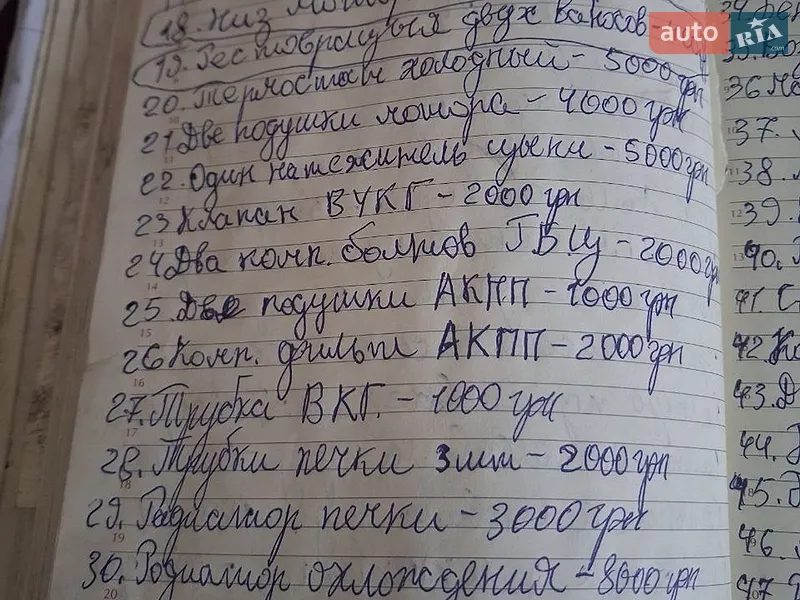 18. Низ
19. Реставрация двух ваносов -
20. Термостат холодный - 5000 грн
21 Две подушки мотора - 4000 грн
22. Один натяжитель цепи - 5000 грн
23 Клапан ВУКГ - 2000 грн
24 Два комп. болтов ГБЦ - 2000 грн
25. Две подушки АКПП - 1000 грн
26 Комп. фильт АКПП - 2000 грн
27. Трубка ВКГ. - 1000 грн
28. Трубки печки 3 шт - 2000 грн
29. Радиатор печки - 3000 грн
30. Радиатор охлаждения - 8000 грн
36
37.
38.
39.
40.
41. С
42.
43. Д
44.
45.
46.
47
auto RIA .com